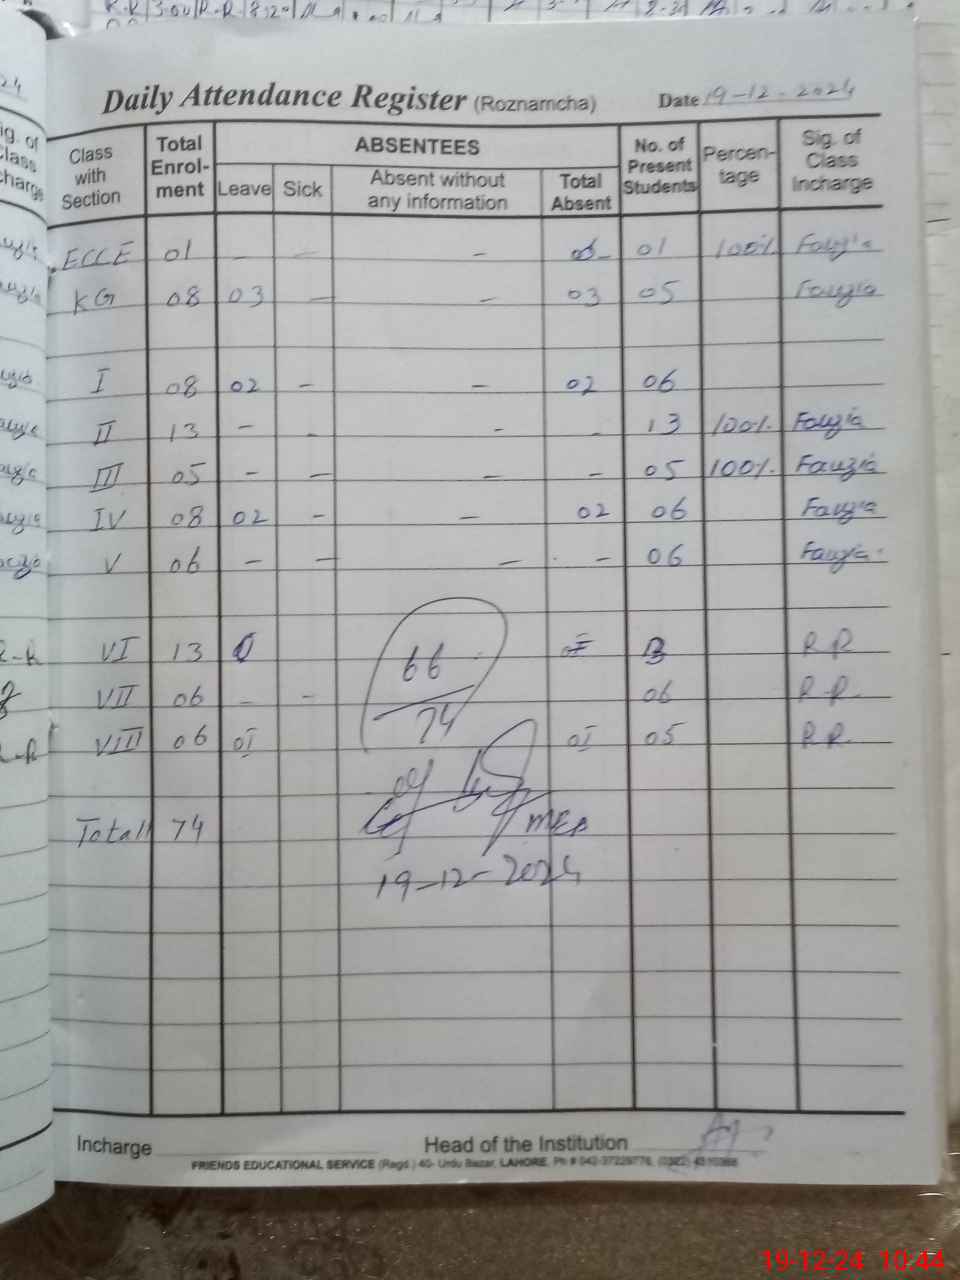 Daily Attendance Register (Roznamcha) Date 19-12-2024
Class with Section Total Enrol-ment ABSENTEES No. of Present Students Percen-tage Sig. of Class Incharge
Leave Sick Absent without any information Total Absent
ECCE 01 - - - 01 100% Fauzia
KG 08 03 - - 03 05 Fauzia
I 08 02 - - 02 06
II 13 - - - - 13 100% Fauzia
III 05 - - - - 05 100% Fauzia
IV 08 02 - - 02 06 Fauzia
V 06 - - - - 06 Fauzia
VI 13 R R
66
VII 06 - - 06 R R
74
VIII 06 01 01 05 R R
Total 74 MEA
19-12-2024
Incharge Head of the Institution
FRIENDS EDUCATIONAL SERVICE (Regd.) 40- Urdu Bazar, LAHORE. Ph #
19-12-24 10:44